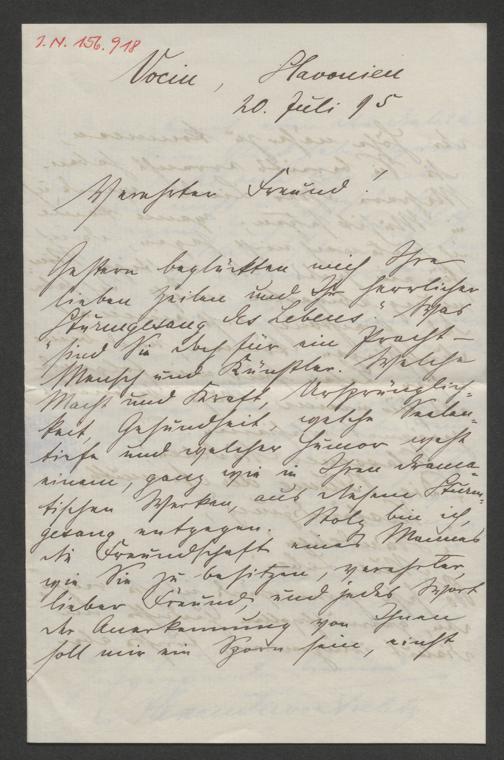 I.N. 156.918
Vocin, Slavonien
20. Juli 95
Verehrter Freund!
Gestern beglückten mich Ihre
lieben Zeilen und Ihr herrlicher
"Sturmgesang des Lebens." Was
sind Sie doch für ein Pracht-
Mensch und Künstler. Welche
Macht und Kraft, Ursprünglich-
keit, Gesundheit, welche Seelen-
tiefe und welcher Humor weht
einem, ganz wie in Ihren drama-
tischen Werken, aus diesem Sturm-
gesang entgegen. Stolz bin ich,
die Freundschaft eines Mannes
wie Sie zu besitzen, verehrter,
lieber Freund, und jedes Wort
der Anerkennung von Ihnen
soll mir ein Sporn sein, einst